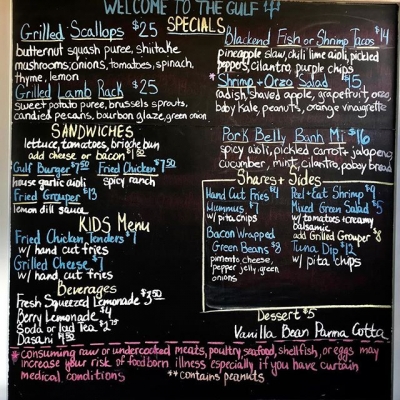 WELCOME TO THE GULF
SPECIALS
Grilled Scallops $25
butternut squash puree, shiitake
mushrooms, onions, tomatoes, spinach,
thyme, lemon
Grilled Lamb Rack $25
sweet potato puree, brussels sprouts,
candied pecans, bourbon glaze, green onion
Blackend Fish or Shrimp Tacos $14
pineapple slaw, chili lime aioli, pickled
peppers, cilantro, purple chips
*Shrimp + Orzo Salad $15
radish, shaved apple, grapefruit, orzo,
baby kale, peanuts, orange vinaigrette
Pork Belly Banh Mi $16
spicy aioli, pickled carrot + jalapeno
cucumber, mint, cilantro, poboy bread
SANDWICHES
lettuce, tomatoes, brioche bun
add cheese or bacon $1
*Gulf Burger $7.50 Fried Chicken $7.50
house garlic aioli spicy ranch
Fried Grouper $13
lemon dill sauce
KIDS Menu
Fried Chicken Tenders $7
w/ hand cut fries
Grilled Cheese $7
w/ hand cut fries
Beverages
Fresh Squeezed Lemonade $3.50
Berry Lemonade $4
Soda or Iced Tea $2.75
Dasani
Shares + Sides
Hand Cut Fries $4
Hummus $7
w/ pita chips
Bacon Wrapped
Green Beans $8
pimento cheese,
pepper jelly, green
onions
Peel + Eat Shrimp
Mixed Green Salad $5
w/ tomatoes + creamy
balsamic
add Grilled Grouper $8
Tuna Dip $12
w/ pita chips
Dessert $5
Vanilla Bean Panna Cotta
*consuming raw or undercooked meats, poultry, seafood, shellfish, or eggs may
increase your risk of foodborn illness especially if you have curtain
medical conditions **contains peanuts